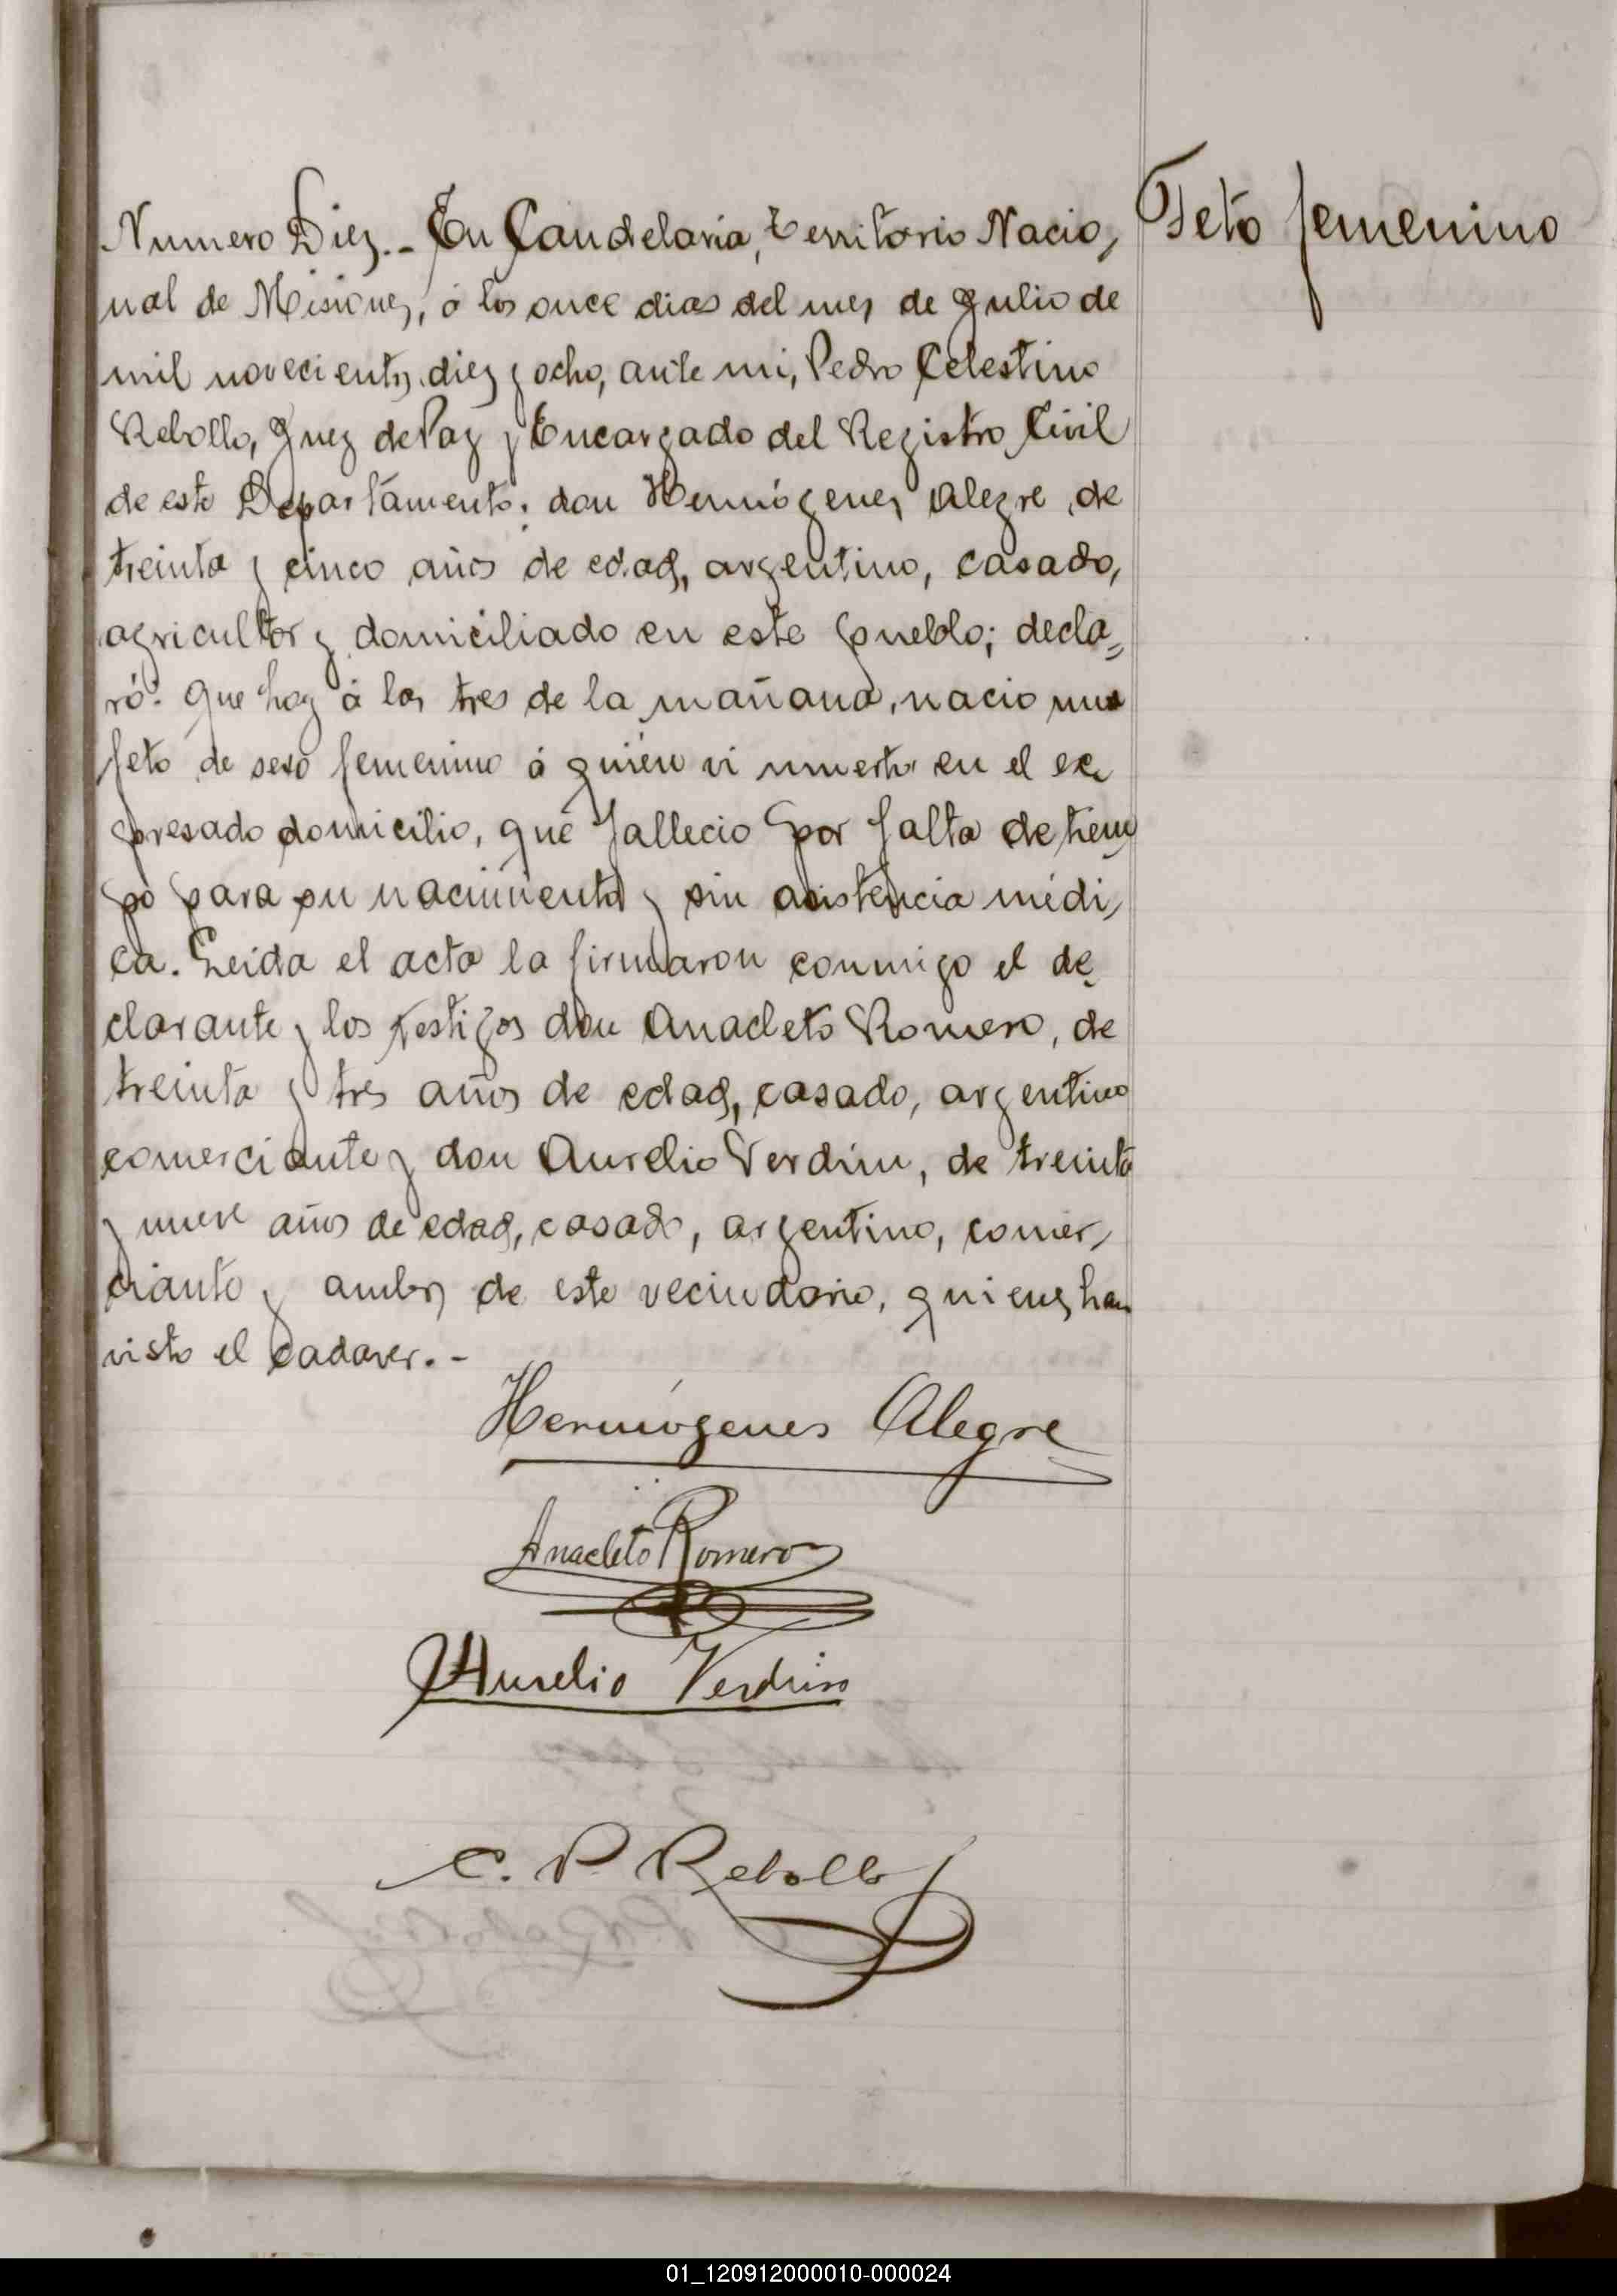 Numero Diez.- En Candelaria, territorio Nacio,
nal de Misiones, á los once dias del mes de Julio de
mil novecientos diez y ocho, ante mi, Pedro Celestino
Rebollo, Juez de Paz y Encargado del Registro Civil
de este Departamento; don Hermógenes Alegre, de
treinta y cinco años de edad, argentino, casado,
agricultor y domiciliado en este pueblo; decla=
ró: Que hoy á las tres de la mañana, nacio un
feto de sexo femenino á quien vi muerto en el ex,
presado domicilio, que fallecio por falta de tiem
po para su nacimiento y sin asistencia médi,
ca. Leida el acta la firmaron conmigo el de,
clarante y los testigos don Anacleto Romero, de
treinta y tres años de edad, casado, argentino
comerciante y don Aurelio Verdun, de treinta
y nueve años de edad, casado, argentino, comer,
ciante y ambos de este vecindario, quienes han
visto el cadaver.-
Feto femenino
Hermógenes Alegre
Anacleto Romero
Aurelio Verdun
C. P. Rebollo
01_120912000010-000024